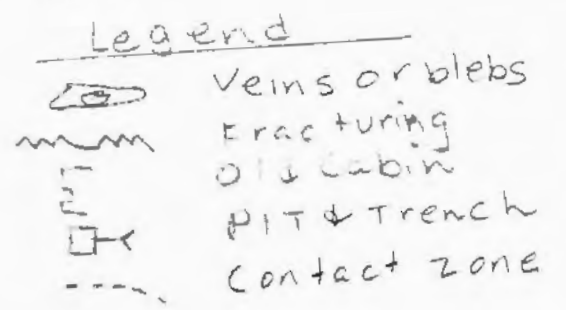 Legend
Veins or blebs
Fracturing
Old cabin
PIT & Trench
Contact zone